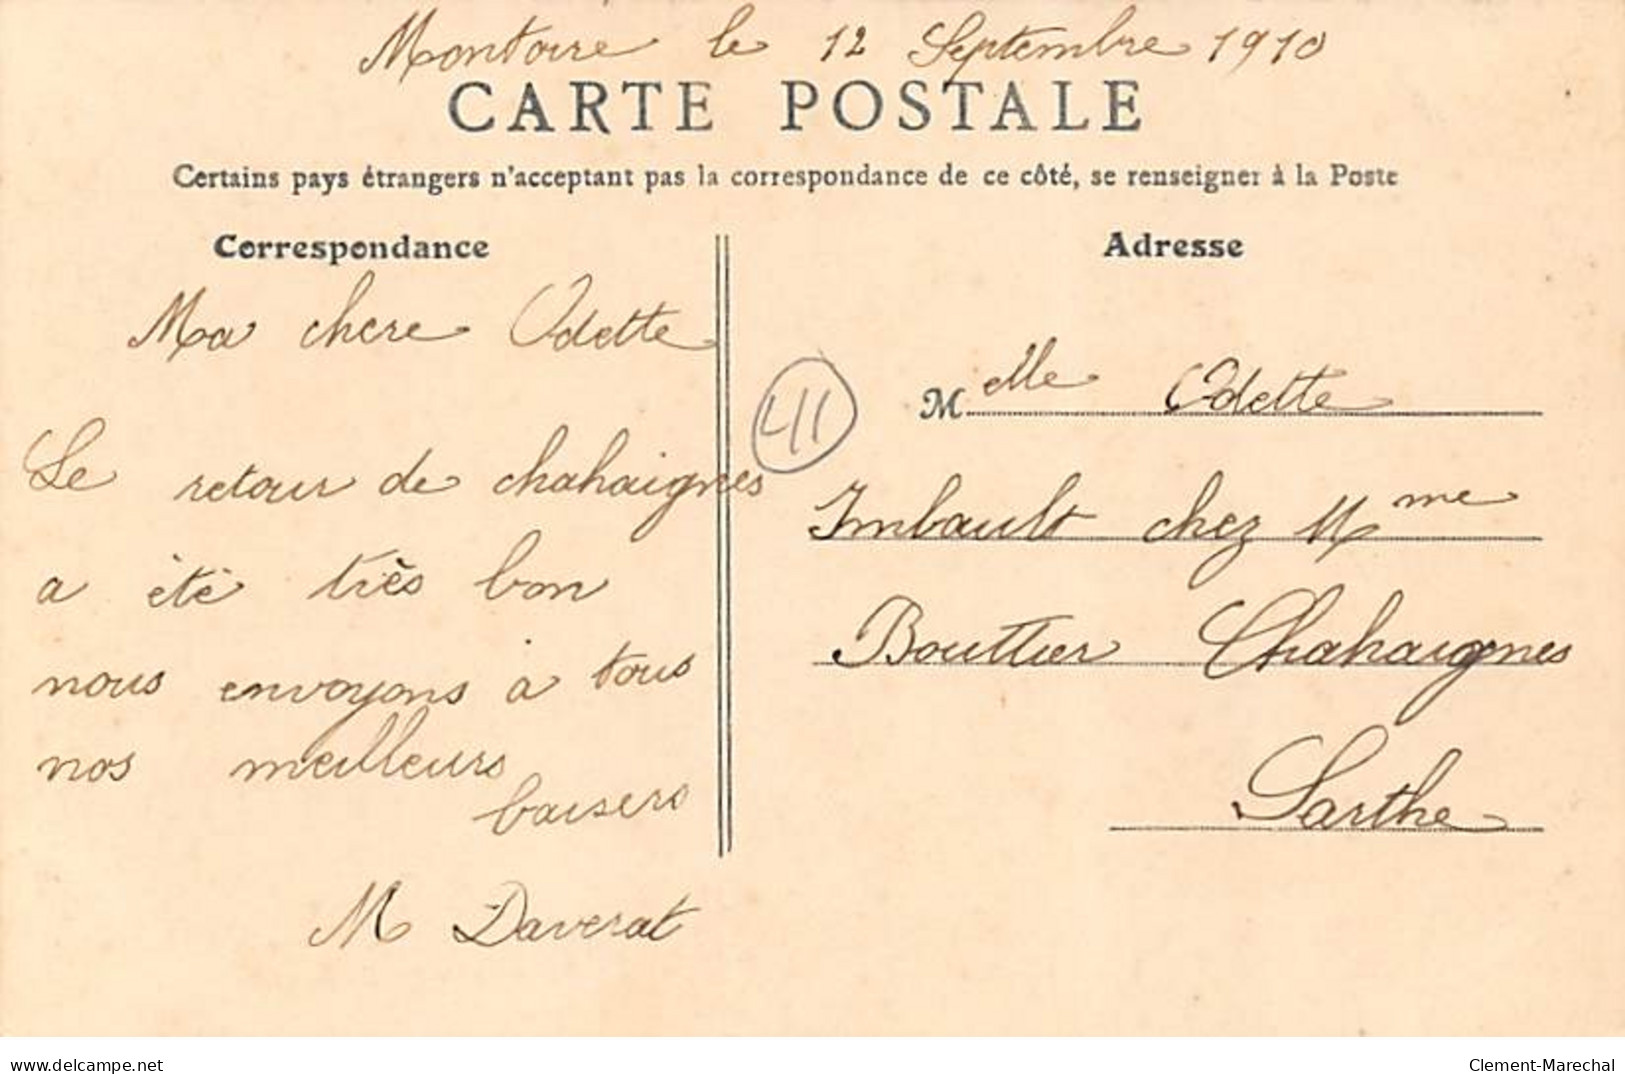 Montoire le 12 Septembre 1910
CARTE POSTALE
Certains pays étrangers n'acceptant pas la correspondance de ce côté, se renseigner à la Poste
Correspondance
Ma chere Odette
Le retour de chahaignes
a été très bon
nous envoyons à tous
nos meilleurs
baisers
M Daverat
41
Adresse
Melle Odette
Imbault chez Mme
Bouttier Chahaignes
Sarthe
delcampe.net
Clement-Marechal